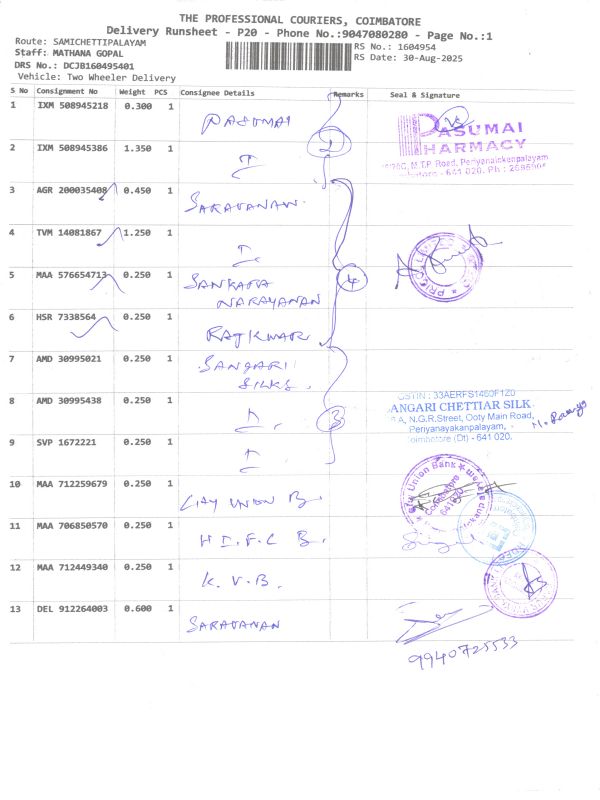 THE PROFESSIONAL COURIERS, COIMBATORE
Delivery Runsheet - P20 - Phone No.:9047080280 - Page No.:1
Route: SAMICHETTIPALAYAM
Staff: MATHANA GOPAL
RS No.: 1604954
DRS No.: DCJB160495401
RS Date: 30-Aug-2025
Vehicle: Two Wheeler Delivery
S No Consignment No Weight PCS Consignee Details Remarks Seal & Signature
1 IXM 508945218 0.300 1 PASUMAI
PASUMAI
PHARMACY
M.T.P. Road, Periyanaickenpalayam
- 641 020. Ph :
2 IXM 508945386 1.350 1 2
3 AGR 200035408 0.450 1 SARAVANAN
4 TVM 14081867 1.250 1
5 MAA 576654713 0.250 1 SANKARA NARAYANAN 4
6 HSR 7338564 0.250 1 RAJKUMAR
7 AMD 30995021 0.250 1 SANGARI SILKS.
8 AMD 30995438 0.250 1 3
GSTIN : 33AERFS1460F1Z0
ANGARI CHETTIAR SILK
N.G.R.Street, Ooty Main Road,
Periyanayakanpalayam,
Coimbatore (Dt) - 641 020.
9 SVP 1672221 0.250 1
10 MAA 712259679 0.250 1 CITY UNION B.
City Union Bank
Coimbatore
641020
11 MAA 706850570 0.250 1 H D F C B.
12 MAA 712449340 0.250 1 K. V. B.
13 DEL 912264003 0.600 1 SARAVANAN
9940725533